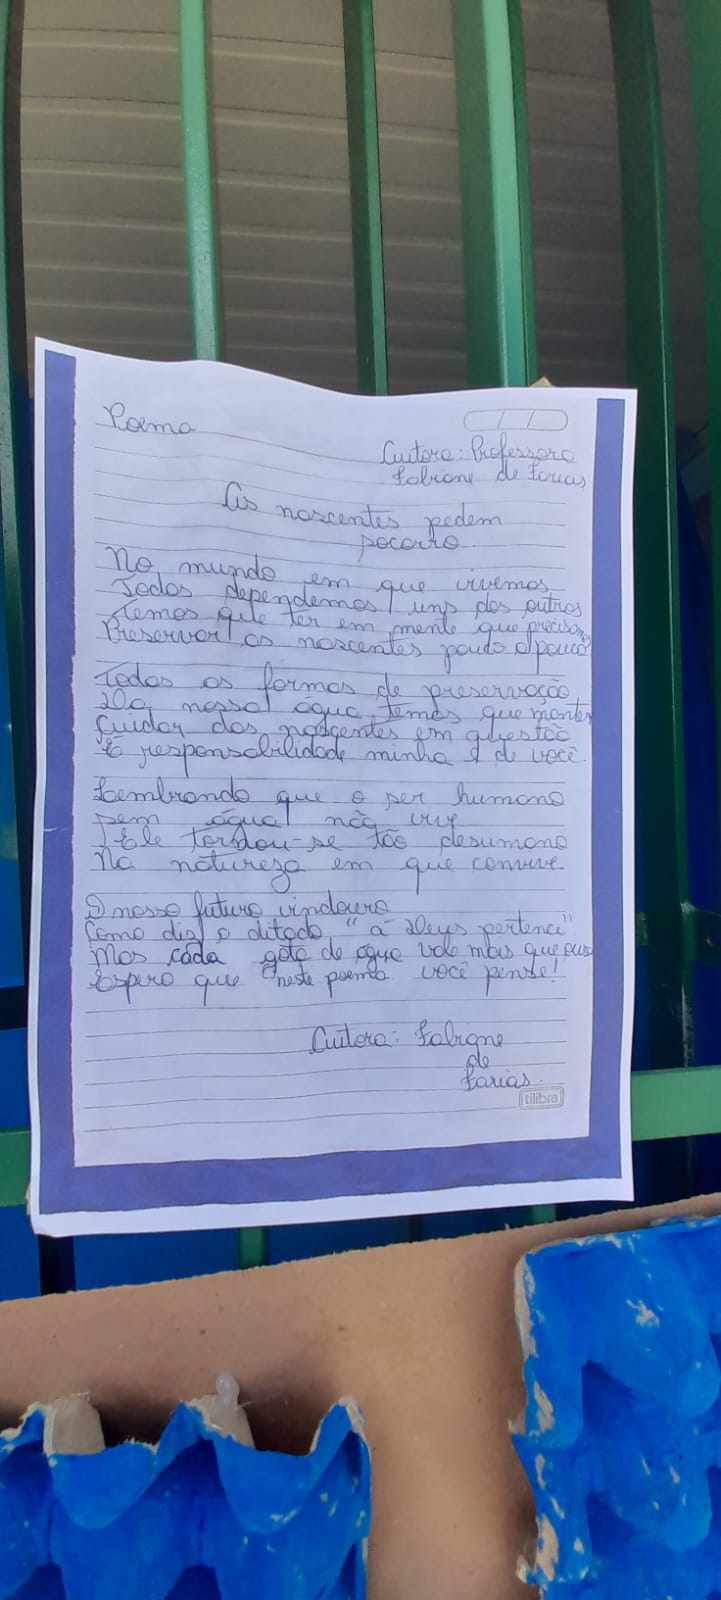 Poema
Autora: Professora
Fabiane de Farias
As nascentes pedem
socorro
No mundo em que vivemos
Todos dependemos uns dos outros
Temos que ter em mente que precisamos
Preservar as nascentes pouco a pouco
Todas as formas de preservação
Da nossa água temos que manter
Cuidar das nascentes em questão
É responsabilidade minha e de você.
Lembrando que o ser humano
sem água não vive
Ele tornou-se tão desumano
Na natureza em que convive.
O nosso futuro vindouro
Como diz o ditado "à Deus pertence"
Mas cada gota de água vale mais que ouro
Espero que neste poema você pense!
Autora: Fabiane
de
Farias.
tilibra